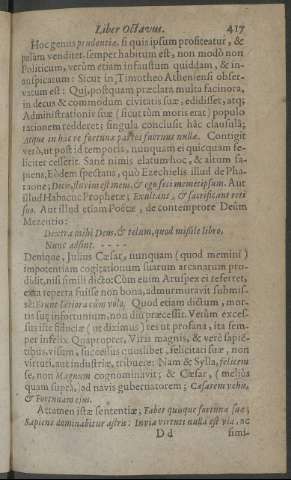 Liber Octavus. 417
Hoc genus prudentiæ, si quis ipsum profiteatur, &
palam venditet, semper habitum est, non modò non
Politicum, verùm etiam infaustum quiddam, & in-
auspicatum: Sicut in Timotheo Atheniensi obser-
vatum est: Qui, postquam præclara multa facinora,
in decus & commodum civitatis suæ, edidisset, atq;
Administrationis suæ (sicut tùm moris erat) populo
rationem redderet; singula conclusit hâc clausulâ;
Atque in hac re fortuna partes fuerunt nullæ. Contigit
verò, ut post id temporis, nunquam ei quicquam fe-
liciter cesserit. Sanè nimis elatum hoc, & altum sa-
piens, Eòdem spectans, quò Ezechielis illud de Pha-
raone; Dicis, fluvius est meus, & ego feci memetipsum. Aut
illud Habacuc Prophetæ; Exultant, & sacrificant reti
suo. Aut illud etiam Poëtæ, de contemptore Deûm
Mezentio:
Dextra mihi Deus, & telum, quod missile libro,
Nunc adsint. - - - -
Denique, Julius Cæsar, nunquam (quod memini)
impotentiam cogitationum suarum arcanarum pro-
didit, nisi simili dicto: Cùm enim Aruspex ei referret,
exta reperta fuisse non bona, admurmuravit submis-
sè: Erunt lætiora cùm volo. Quod etiam dictum, mor-
tis suæ infortunium, non diù præcessit. Verùm exces-
sus iste fiduciæ (ut diximus) res ut profana, ita sem-
per infelix. Quapropter, Viris magnis, & verè sapiē-
tibus, visum, successus quoslibet, felicitati suæ, non
virtuti, aut industriæ, tribuere: Nam & Sylla, felicem
se, non Magnum cognominavit; & Cæsar, (meliùs
quam suprà) ad navis gubernatorem; Cæsarem vehis,
& Fortunam ejus.
Attamen istæ sententiæ, Faber quisque fortunæ suæ;
Sapiens dominabitur astris: Invia virtuti nulla est via, ac
D d simi-